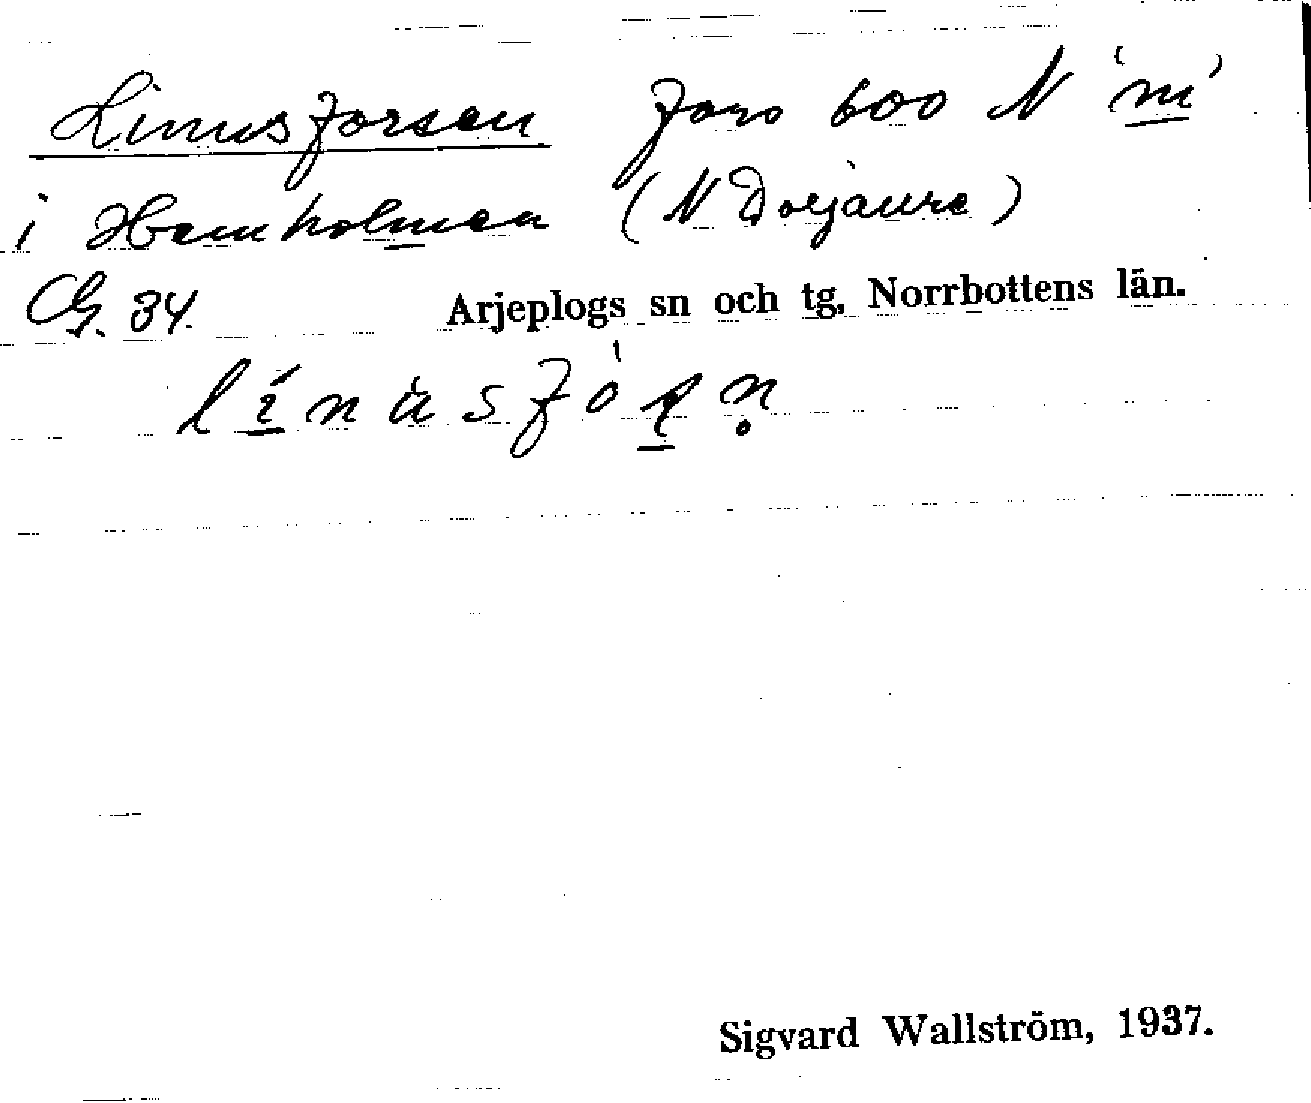 Linusforsen fors 600 N 'm'
i Hemholmen (N Dorjaure)
CG. 34. Arjeplogs sn och tg, Norrbottens län.
Sigvard Wallström, 1937.